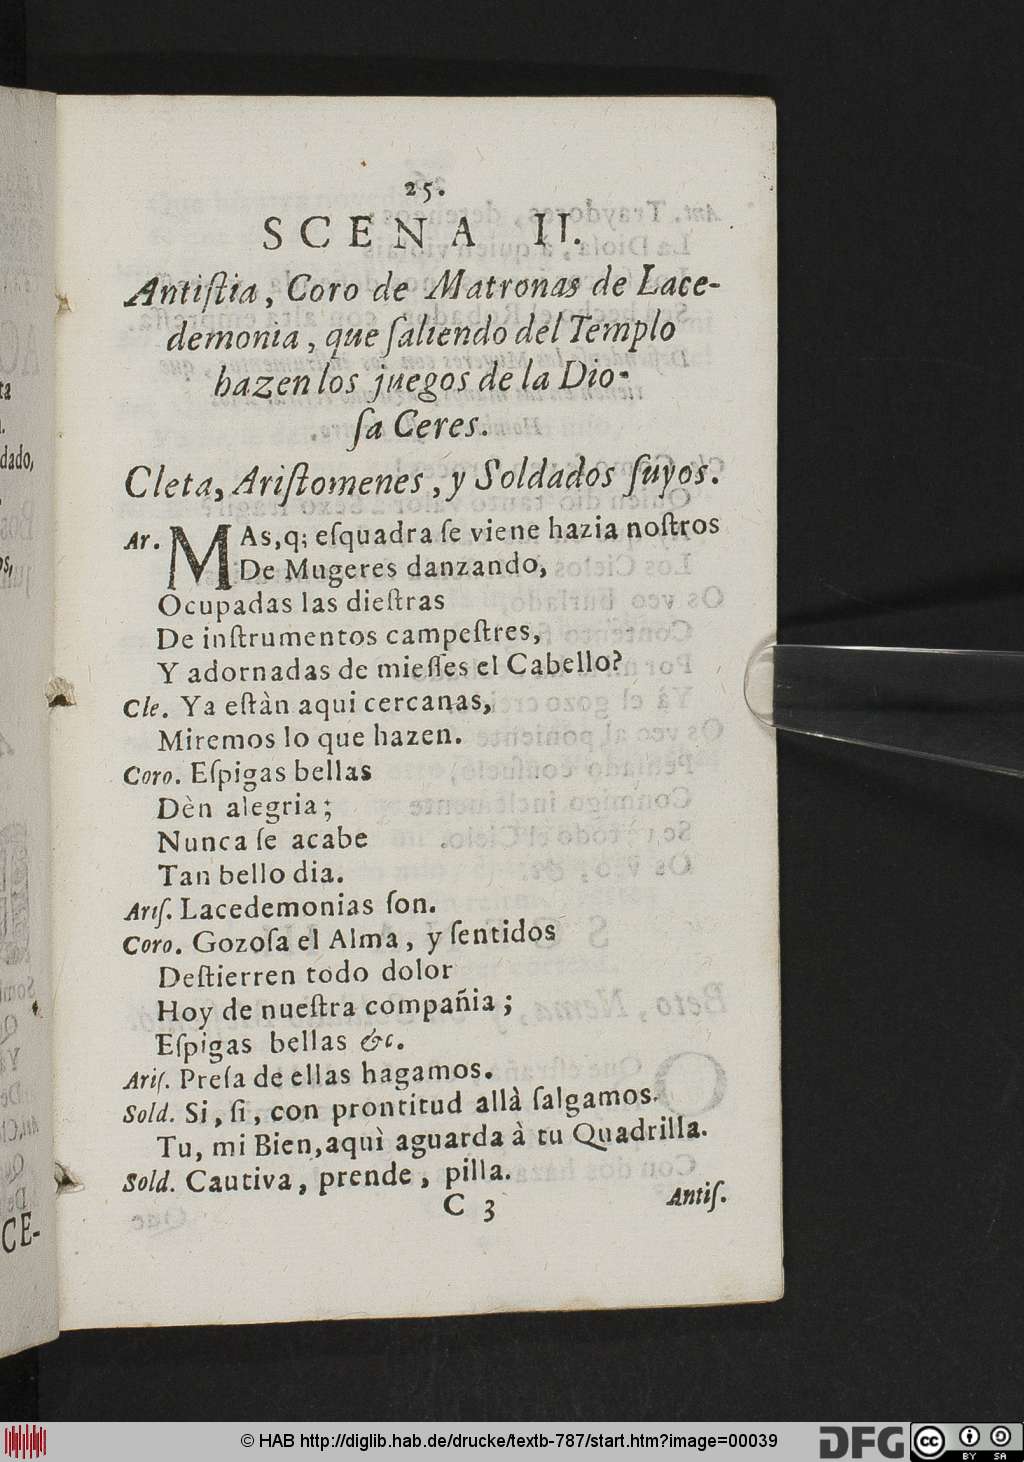 25.
SCENA II.
Antiſtia, Coro de Matronas de Lace-
demonia, que ſaliendo del Templo
hazen los juegos de la Dio-
ſa Ceres.
Cleta, Ariſtomenes, y Soldados ſuyos.
Ar. MAs, q; eſquadra ſe viene hazia noſtros
De Mugeres danzando,
Ocupadas las dieſtras
De inſtrumentos campeſtres,
Y adornadas de mieſſes el Cabello?
Cle. Ya eſtàn aqui cercanas,
Miremos lo que hazen.
Coro. Eſpigas bellas
Dèn alegria;
Nunca ſe acabe
Tan bello dia.
Ariſ. Lacedemonias ſon.
Coro. Gozoſa el Alma, y ſentidos
Deſtierren todo dolor
Hoy de nueſtra compañia;
Eſpigas bellas &c.
Ariſ. Preſa de ellas hagamos.
Sold. Si, ſi, con prontitud allà ſalgamos.
Tu, mi Bien, aquì aguarda à tu Quadrilla.
Sold. Cautiva, prende, pilla.
C 3
Antiſ.
ta
dado,
os,
CE-
© HAB http://diglib.hab.de/drucke/textb-787/start.htm?image=00039
DFG
cc BY SA